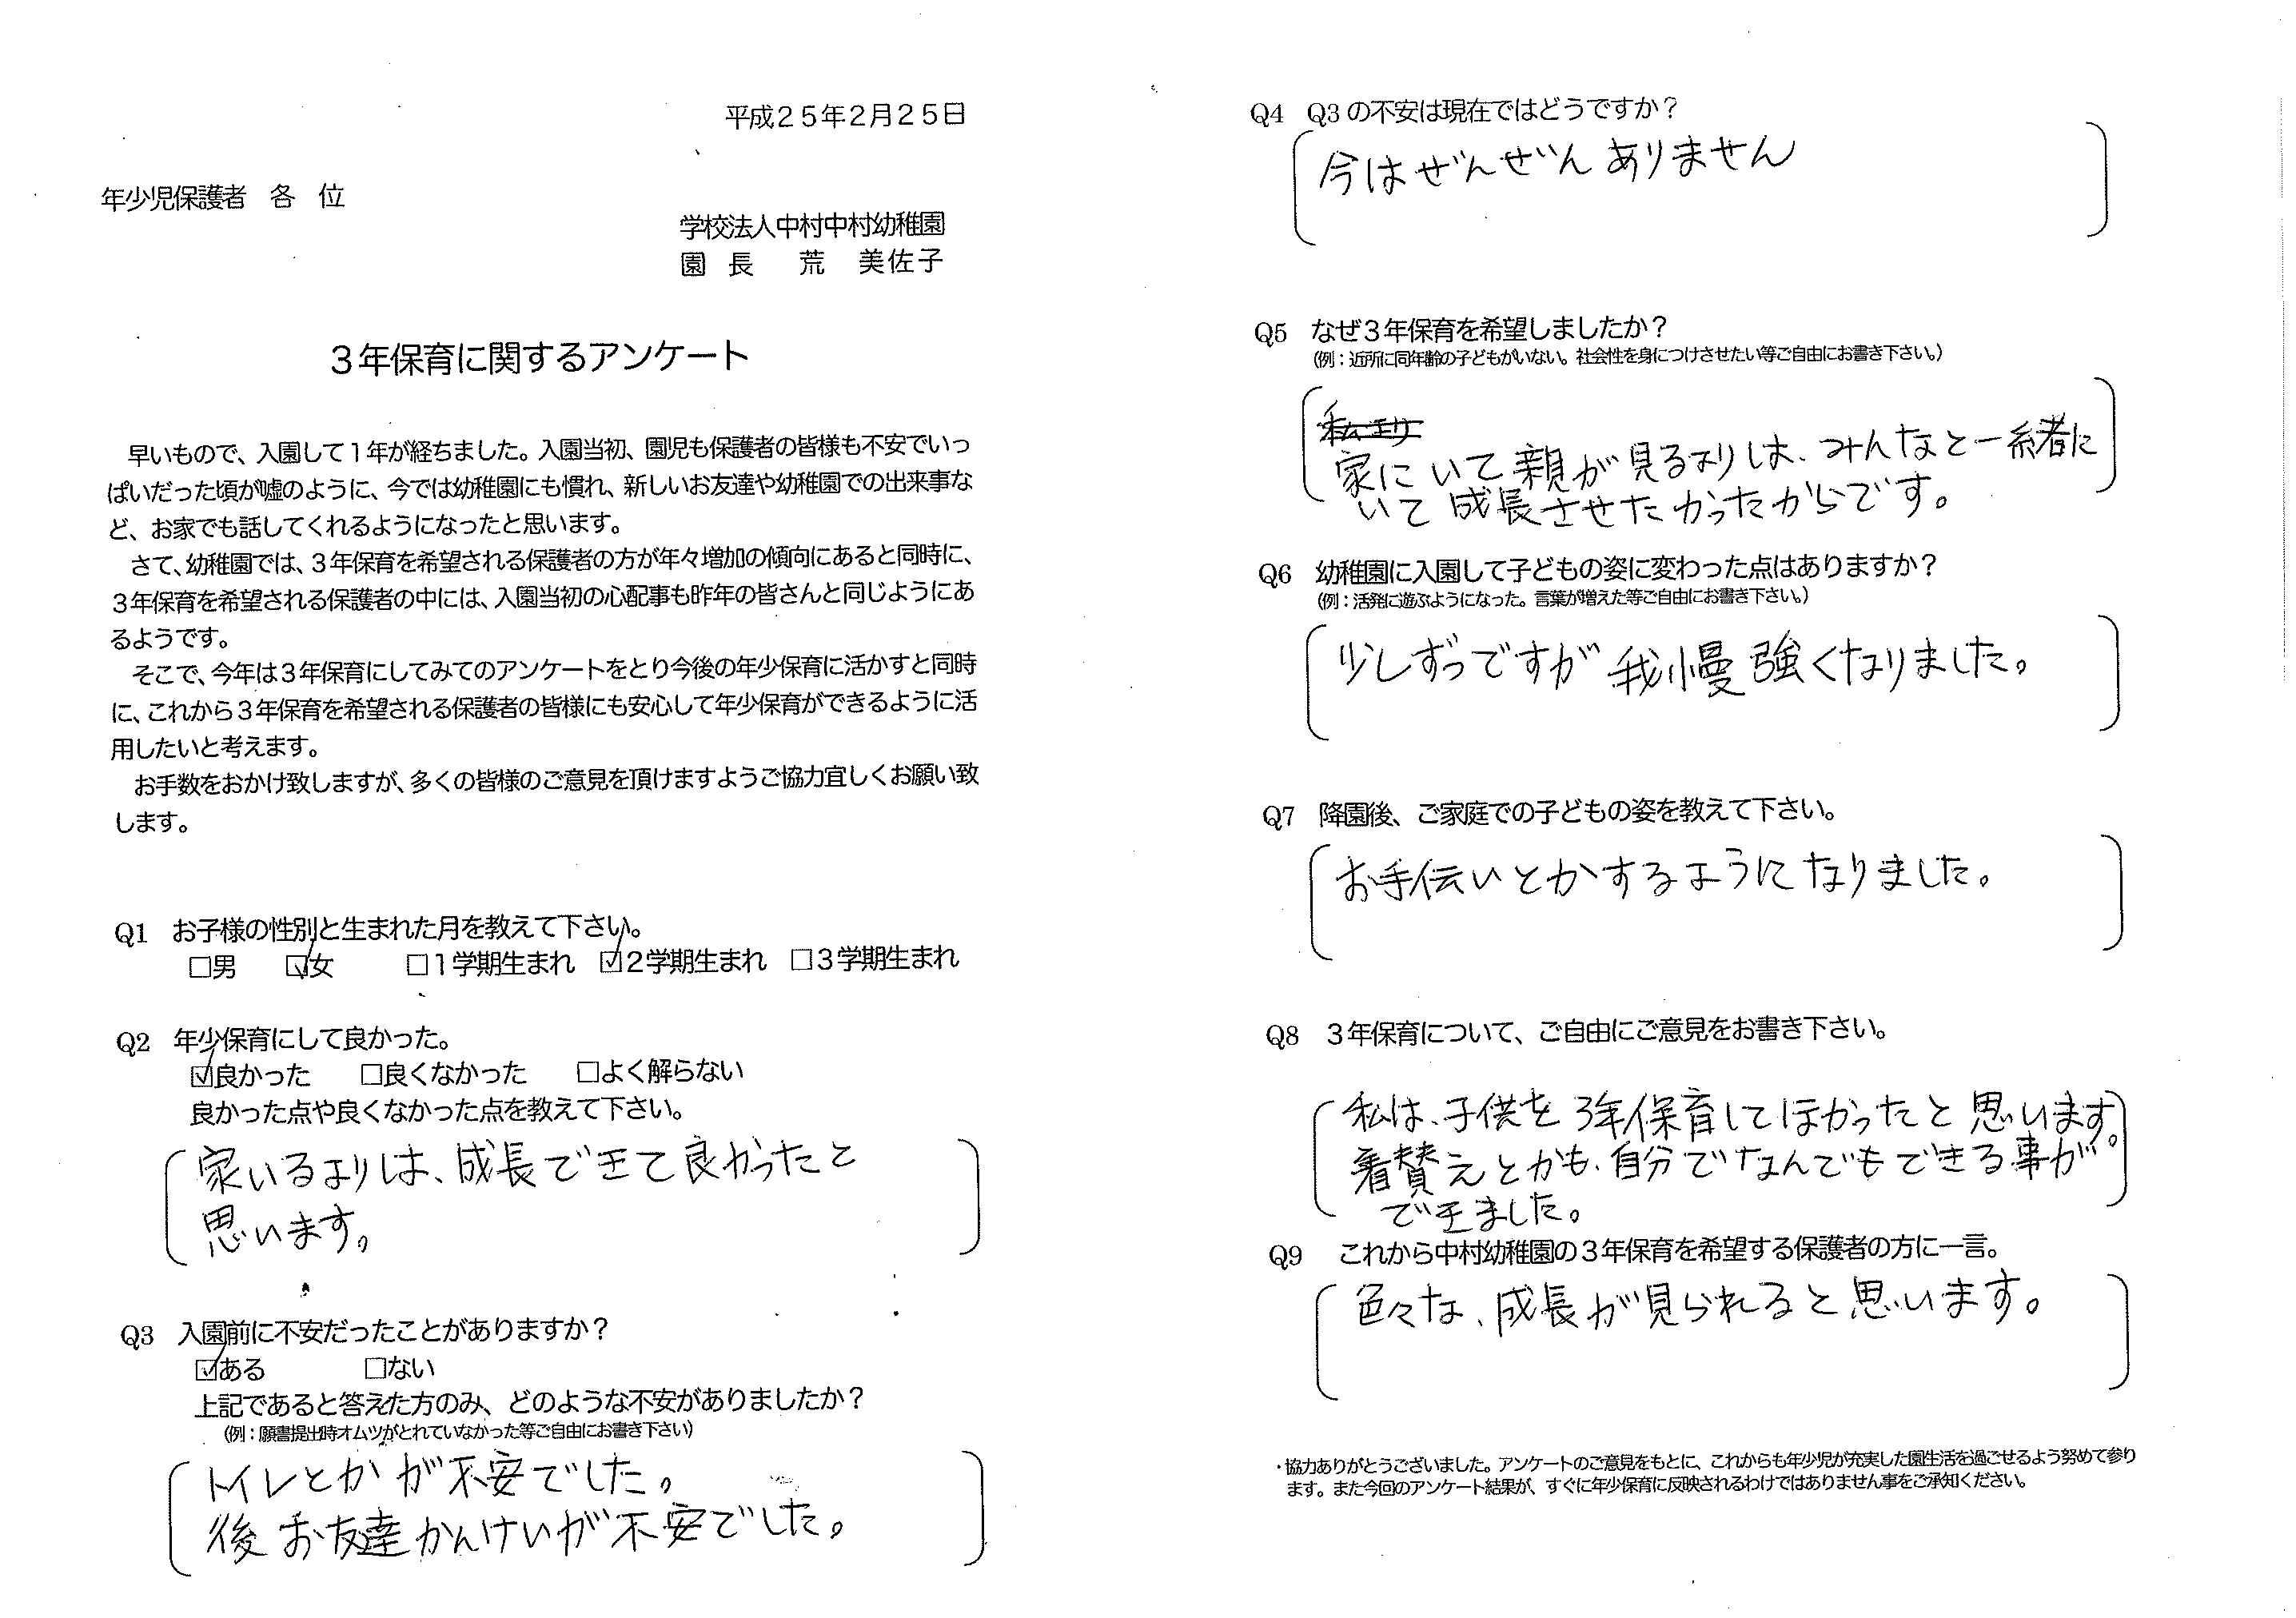 平成25年2月25日
年少児保護者 各 位
学校法人中村中村幼稚園
園 長 荒 美佐子
3年保育に関するアンケート
早いもので、入園して1年が経ちました。入園当初、園児も保護者の皆様も不安でいっ
ぱいだった頃が嘘のように、今では幼稚園にも慣れ、新しいお友達や幼稚園での出来事な
ど、お家でも話してくれるようになったと思います。
さて、幼稚園では、3年保育を希望される保護者の方が年々増加の傾向にあると同時に、
3年保育を希望される保護者の中には、入園当初の心配事も昨年の皆さんと同じようにあ
るようです。
そこで、今年は3年保育にしてみてのアンケートをとり今後の年少保育に活かすと同時
に、これから3年保育を希望される保護者の皆様にも安心して年少保育ができるように活
用したいと考えます。
お手数をおかけ致しますが、多くの皆様のご意見を頂けますようご協力宜しくお願い致
します。
Q1 お子様の性別と生まれた月を教えて下さい。
□男 ☑女 □1学期生まれ ☑2学期生まれ □3学期生まれ
Q2 年少保育にして良かった。
☑良かった □良くなかった □よく解らない
良かった点や良くなかった点を教えて下さい。
家いるよりは、成長できて良かったと
思います。
Q3 入園前に不安だったことがありますか？
☑ある □ない
上記であると答えた方のみ、どのような不安がありましたか？
（例：願書提出時オムツがとれていなかった等ご自由にお書き下さい）
トイレとかが不安でした。
後お友達かんけいが不安でした。
Q4 Q3の不安は現在ではどうですか？
今はぜんぜんありません
Q5 なぜ3年保育を希望しましたか？
（例：近所に同年齢の子どもがいない。社会性を身につけさせたい等ご自由にお書き下さい。）
家にいて親が見るよりは、みんなと一緒に
いて成長させたかったからです。
Q6 幼稚園に入園して子どもの姿に変わった点はありますか？
（例：活発に遊ぶようになった。言葉が増えた等ご自由にお書き下さい。）
少しずつですが我慢強くなりました。
Q7 降園後、ご家庭での子どもの姿を教えて下さい。
お手伝いとかするようになりました。
Q8 3年保育について、ご自由にご意見をお書き下さい。
私は、子供を3年保育してほかったと思います。
着賛えとかも、自分でなんでもできる事が
できました。
Q9 これから中村幼稚園の3年保育を希望する保護者の方に一言。
色々な、成長が見られると思います。
・協力ありがとうございました。アンケートのご意見をもとに、これからも年少児が充実した園生活を過ごせるよう努めて参り
ます。また今回のアンケート結果が、すぐに年少保育に反映されるわけではありません事をご承知ください。